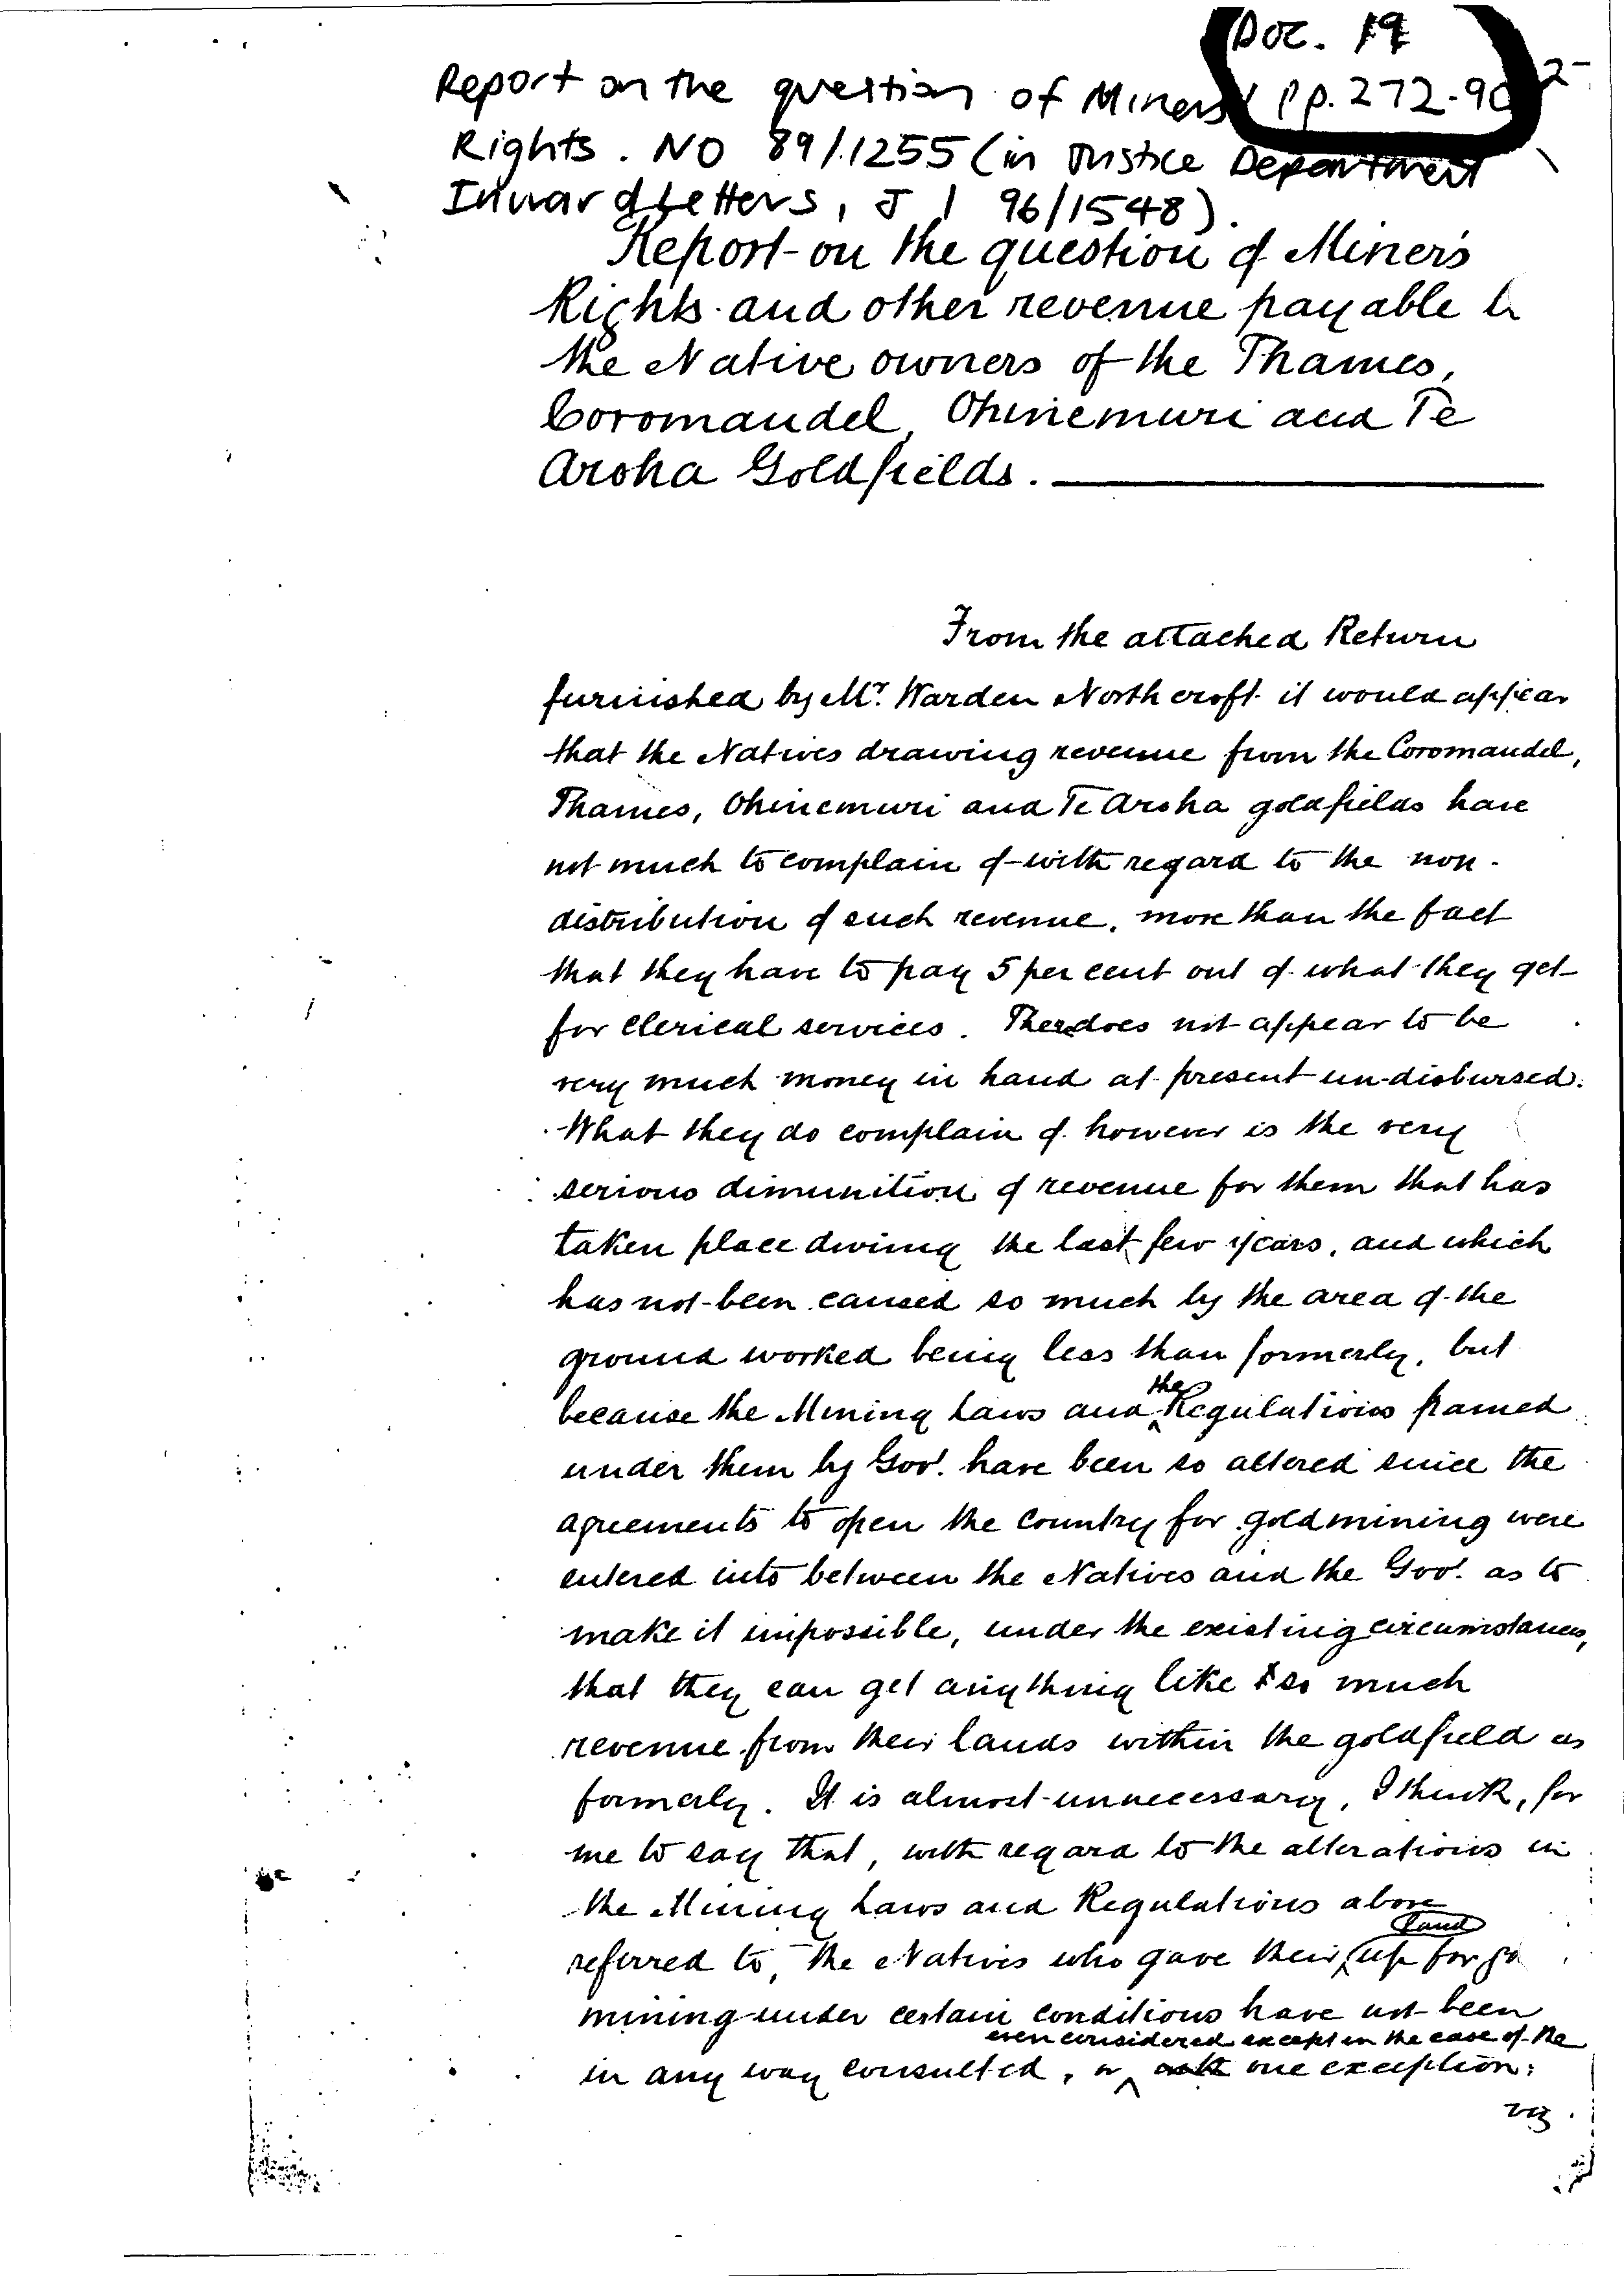 Doc. 19
Report on the question of Miners' pp. 272-90
Rights. No 89/1255 (in Justice Department
Inward Letters, J 1 96/1548).
Report on the question of Miner's
Rights and other revenue payable to
the Native owners of the Thames,
Coromandel, Ohinemuri and Te
Aroha Goldfields.
From the attached Return
furnished by Mr. Warden Northcroft it would appear
that the Natives drawing revenue from the Coromandel,
Thames, Ohinemuri and Te Aroha goldfields have
not much to complain of with regard to the non-
distribution of such revenue, more than the fact
that they have to pay 5 per cent out of what they get
for clerical services. There does not appear to be
very much money in hand at present un-disbursed.
What they do complain of however is the very
serious dimunition of revenue for them that has
taken place during the last few years, and which
has not been caused so much by the area of the
ground worked being less than formerly, but
because the Mining Laws and the Regulations framed
under them by Govt. have been so altered since the
agreements to open the country for goldmining were
entered into between the Natives and the Govt. as to
make it impossible, under the existing circumstances,
that they can get anything like so much
revenue from their lands within the goldfield as
formerly. It is almost unnecessary, I think, for
me to say that, with regard to the alterations in
the Mining Laws and Regulations above
referred to, the Natives who gave their land up for go
mining under certain conditions have not been
in any way consulted, or even considered except in the case of the one exception:
viz.